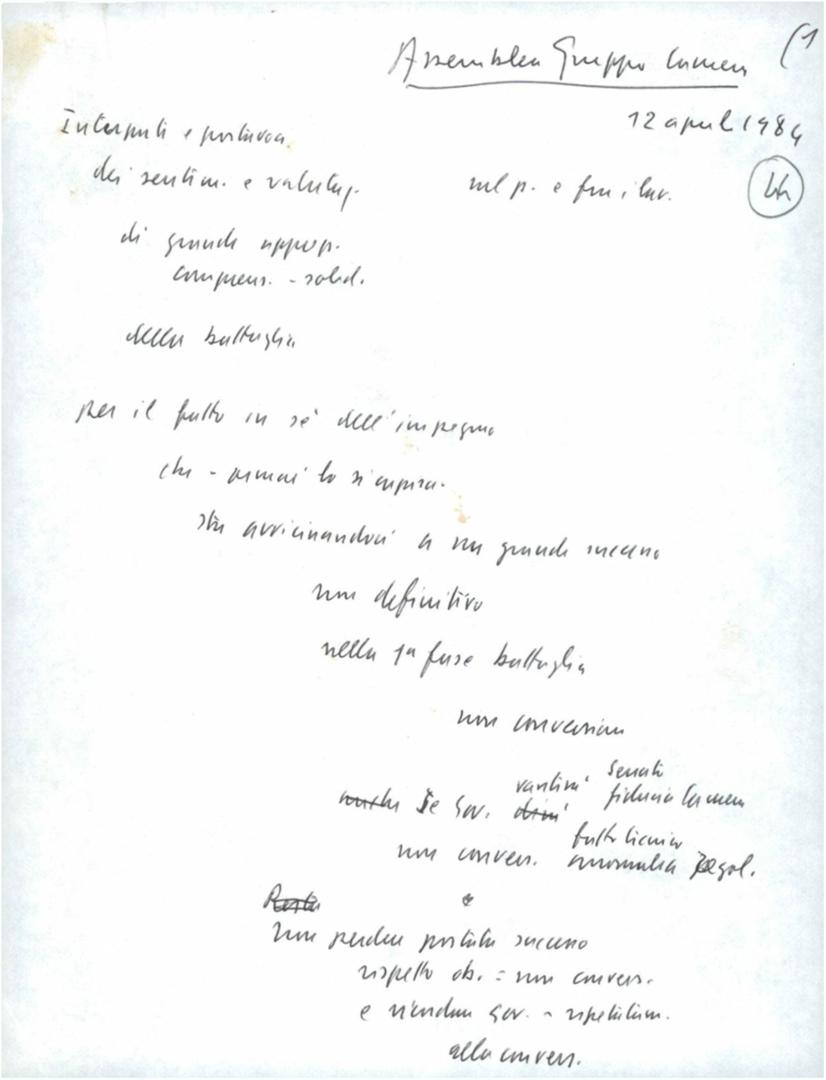 Assemblea Gruppo Camera (1
12 april 1984
Interpreti e portavoce
dei sentim. e valutaz. nel p. e fra i lav.
di grande approp.
comprens. - solid.
della battaglia
per il fatto in sé dell'impegno
che - ormai lo si capisce -
sta avvicinandoci a un grande successo
non definitivo
nella 1ª fase battaglia
non conversione
Senato
se Gov. vantini fiducia Camera
non convers. anomalia Regol.
e
non perde portata successo
rispetto ob. = non convers.
e Gov. a
alla convers.